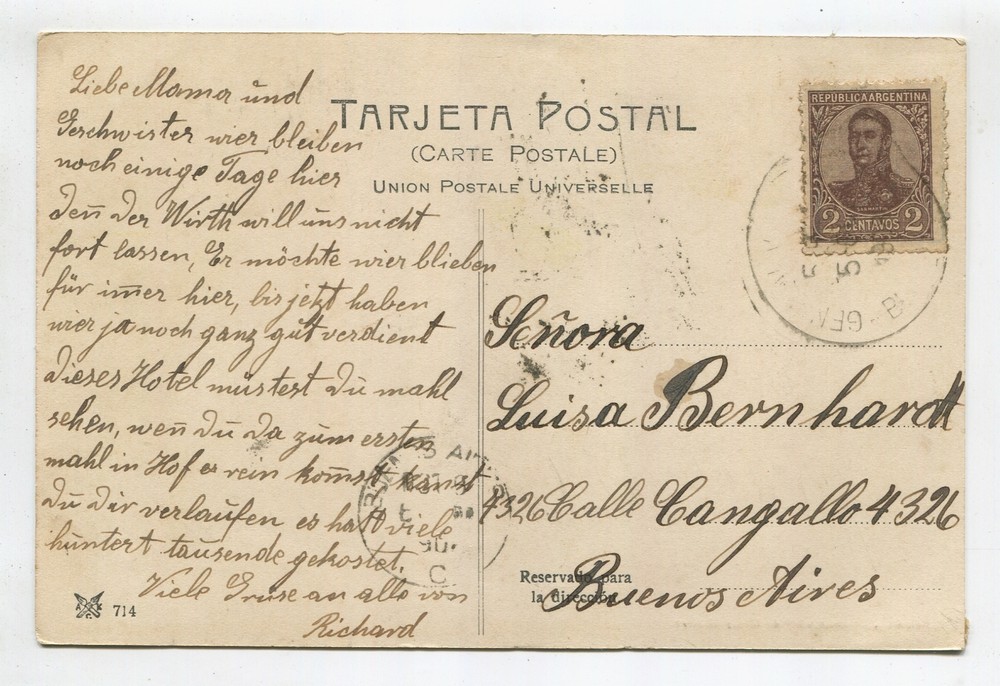 Liebe Mama und
Geschwister wier bleiben
noch einige Tage hier
den̅ der Wirth will uns nicht
fort lassen, Er möchte wier blieben
für im̅er hier, bis jetzt haben
wier ja noch ganz gut verdient
dieses Hotel müstest du mahl
sehen, wen̅ du da zum ersten
mahl in Hof er rein kom̅st kanst
du dir verlaufen es hatt viele
huntert tausende gekostet.
Viele Grüse an alle von
Richard
714
TARJETA POSTAL
(CARTE POSTALE)
UNION POSTALE UNIVERSELLE
REPÚBLICA ARGENTINA
2 CENTAVOS 2
Señora
Luisa Bernhardt
4326 Calle Cangallo 4326
Buenos Aires
Reservado para
la dirección